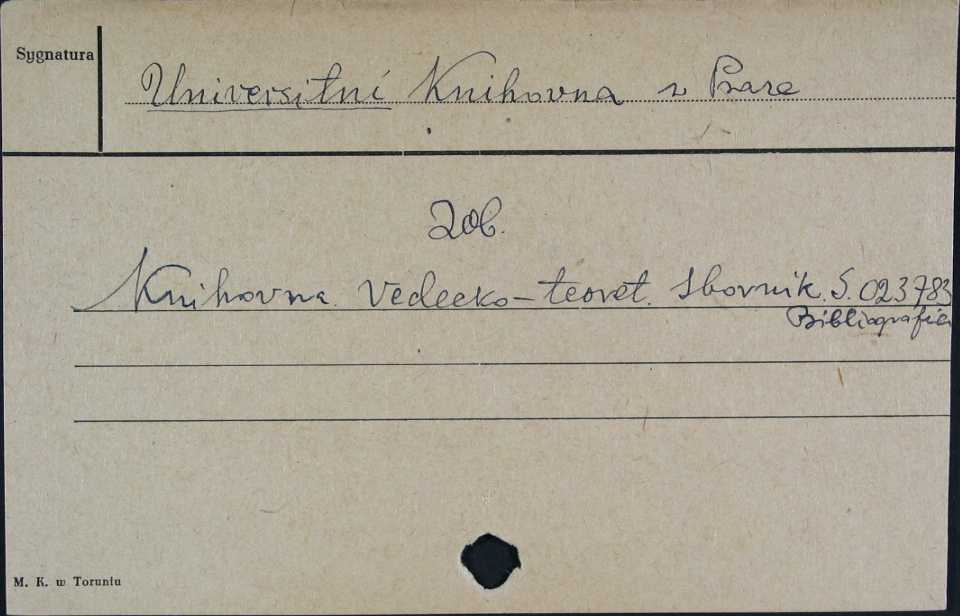 Sygnatura
Universitní Knihovna v Praze
zob.
Knihovna. Vedecko-teoret. Sbornik. S. 023783
Bibliografia
M. K. w Toruniu